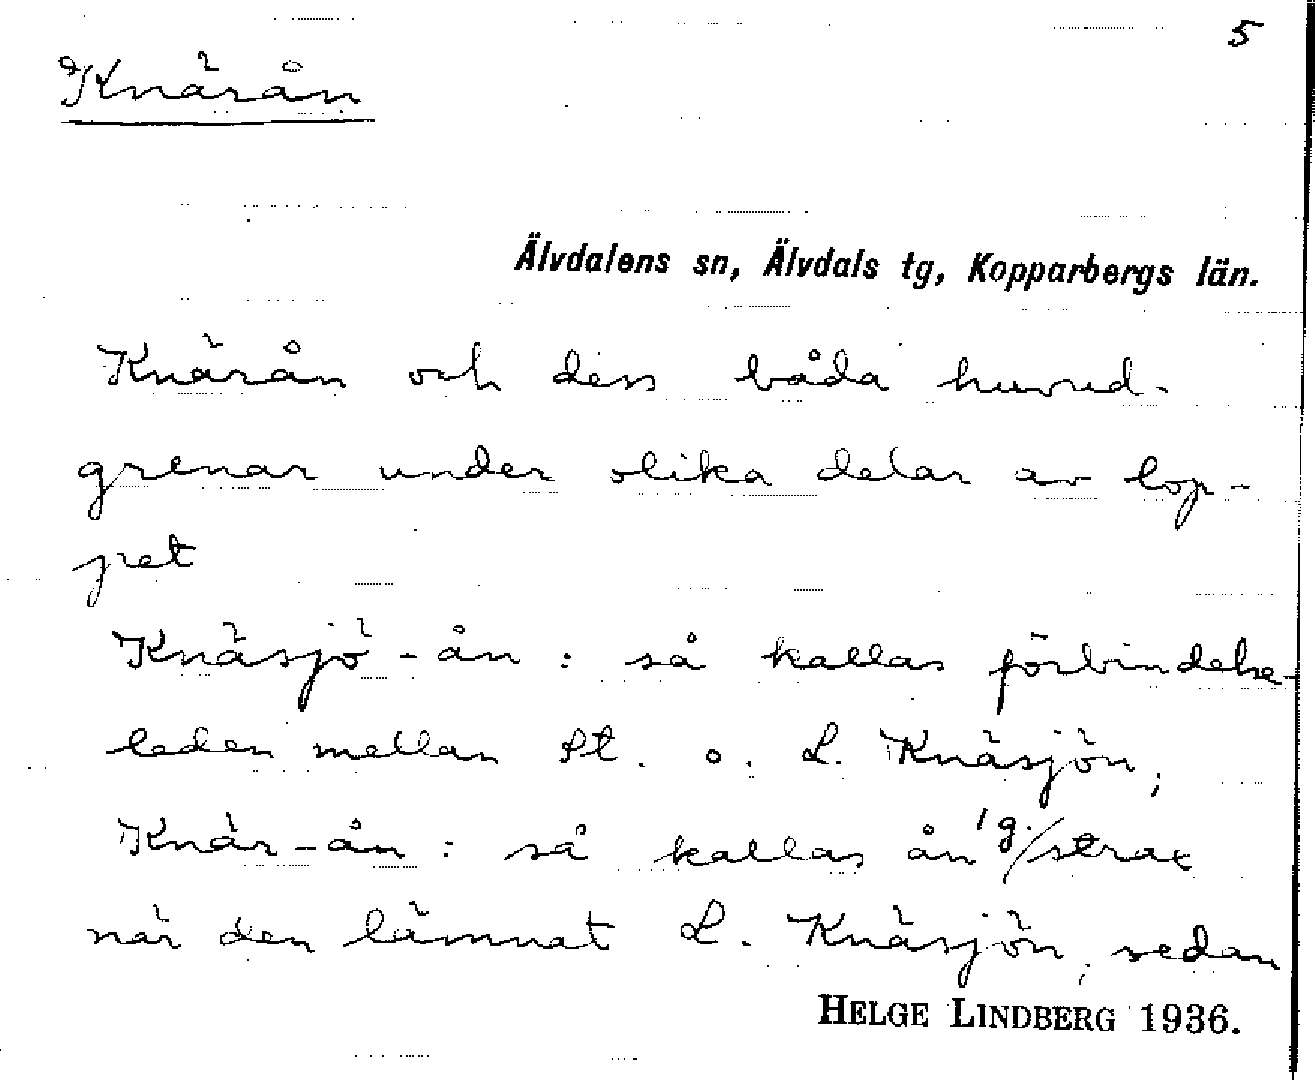 5
Knärån
Älvdalens sn, Älvdals tg, Kopparbergs län.
Knärån och dess båda huvud-
grenar under olika delar av lop-
pet
Knäsjö-ån: så kallas förbindelse-
leden mellan St. o. L. Knäsjön;
Knär-ån: så kallas ån 1 g./strax
när den lämnat L. Knäsjön, sedan
HELGE LINDBERG 1936.